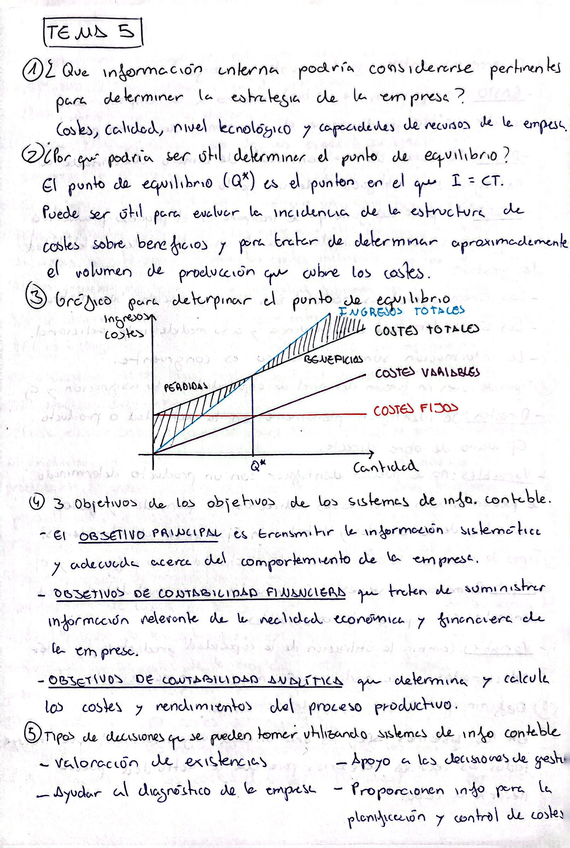 TEMA 5
① ¿ Que información interna podría considerarse pertinentes
para determinar la estrategia de la empresa?
Costes, calidad, nivel tecnológico y capacidades de recursos de la empesa.
② ¿Por qué podría ser útil determinar el punto de equilibrio?
El punto de equilibrio (Q*) es el punton en el que I = CT.
Puede ser útil para evaluar la incidencia de la estructura de
costes sobre beneficios y para tratar de determinar aproximadamente
el volumen de producción que cubre los costes.
③ Gráfico para deterpinar el punto de equilibrio
Ingresos
costes
INGRESOS TOTALES
COSTES TOTALES
BENEFICIOS
COSTES VARIABLES
PÉRDIDAS
COSTES FIJOS
Q*
Cantidad
④ 3 Objetivos de los objetivos de los sistemas de info. contable.
- El OBJETIVO PRINCIPAL es transmitir la información sistemática
y adecuada acerca del comportamiento de la empresa.
- OBJETIVOS DE CONTABILIDAD FINANCIERA que traten de suministrar
información relevante de la realidad económica y financiera de
la empresa.
- OBJETIVOS DE CONTABILIDAD ANALÍTICA que determina y calcula
los costes y rendimientos del proceso productivo.
⑤ Tipos de decisiones que se pueden tomar utilizando sistemas de info contable
- Valoración de existencias
- Ayudar al diagnóstico de la empresa
- Apoyo a las decisiones de gesti
- Proporcionen info para la
planificación y control de costes